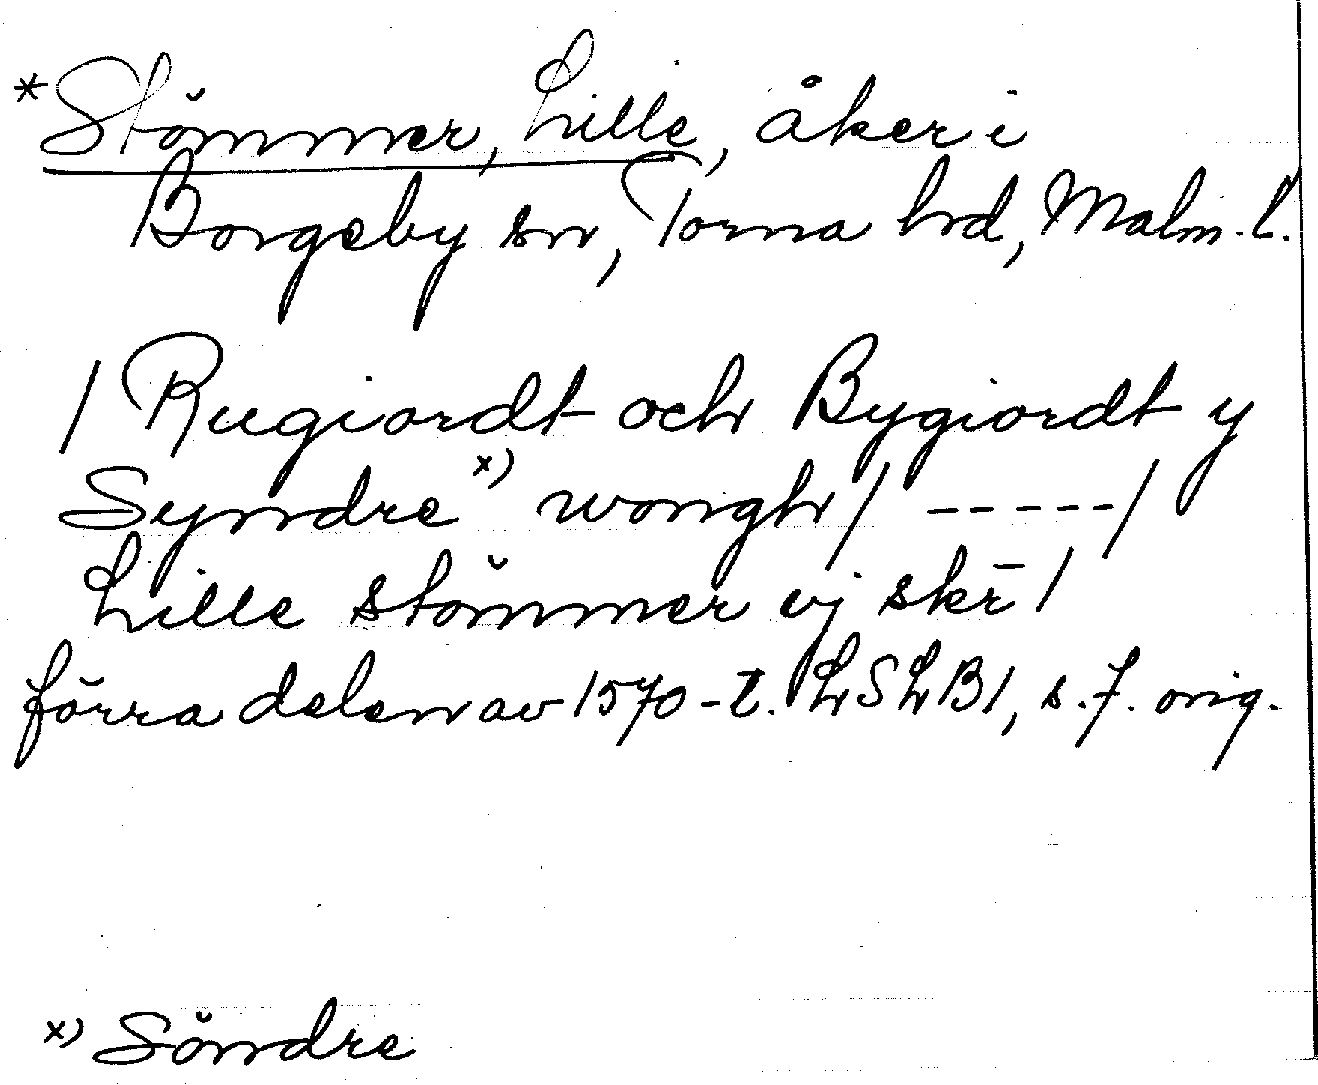 *Stŏmmer, Lille, åker i
Borgeby sn, Torna hd, Malm. l.
/ Rugiordt och Bygiordt y
Syndre x) wongh / ----- /
Lille stŏmmer vj skē /
förra delen av 1570-t. LSLB1, s. 7. orig.
x) Sŏndre